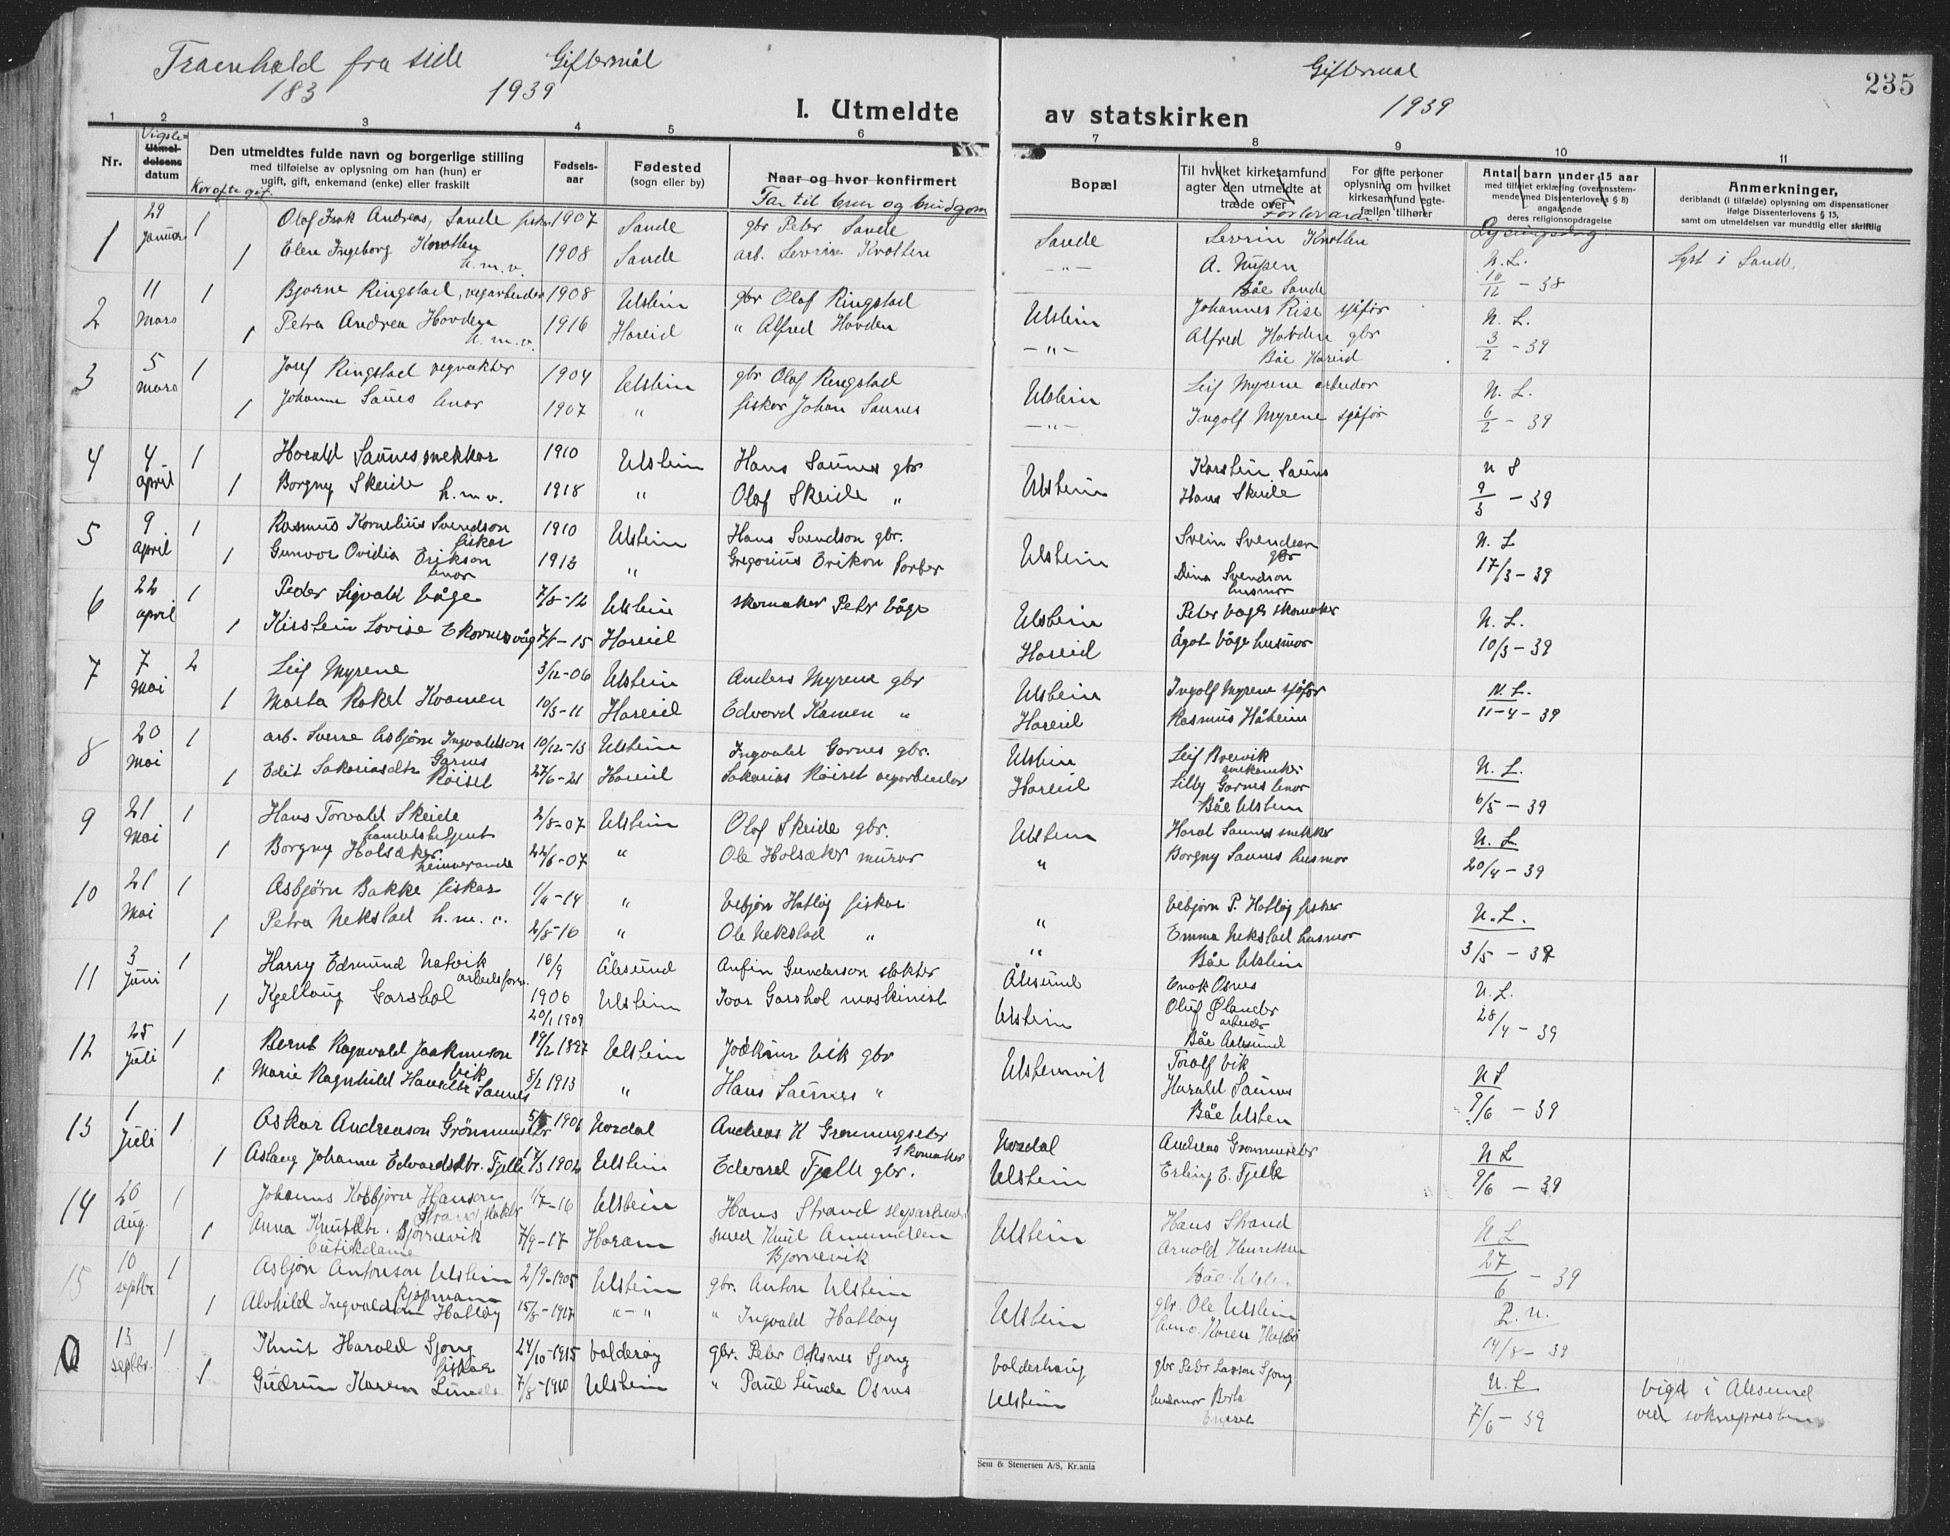 Framhald fra side 183
Giftermål 1939
Giftermål 1939
235
I. Utmeldte av statskirken
1 2 3 4 5 6 7 8 9 10 11
Nr.
Vigsle=
Utmel-
delsens
datum
Kor ofte gift
Den utmeldtes fulde navn og borgerlige stilling
med tilføielse av oplysning om han (hun) er
ugift, gift, enkemand (enke) eller fraskilt
Fødsels-
aar
Fødested
(sogn eller by)
Naar og hvor konfirmert
Far til brur og brudgom
Bopæl
Til hvilket kirkesamfund
agter den utmeldte at
træde over
Forlovarar
For gifte personer
oplysning om hvilket
kirkesamfund egte-
fællen tilhører
Antal barn under 15 aar
med tilføiet erklæring (overensstem-
mende med Dissenterlovens § 8)
angaaende
deres religionsopdragelse
Lysingsdag
Anmerkninger,
deriblandt (i tilfælde) oplysning om dispensationer
ifølge Dissenterlovens § 15,
samt om utmeldelsen var mundtlig eller skriftlig
1 29 Januar 1 Olaf Isak Andreas, Sande fiskar 1907 Sande gbr Peter Sande Sande Severin Knotten N. L.
1 Elen Ingeborg Knotten h.m.v. 1908 Sande arb. Severin Knotten -"- A. Nupen 10/12 - 38 Lyst i Sande.
Båe Sande
2 11 Mars 1 Bjarne Ringstad, vegarbeider 1908 Ulstein gbr Olaf Ringstad Ulstein Johannes Rise sjåfør N. L.
1 Petra Andrea Hovden h.m.v. 1916 Hareid " Alfred Hovden -"- Alfred Hovden gbr 3/2 - 39
Båe Hareid
3 5 mars 1 Josef Ringstad vegvakter 1904 Ulstein gbr Olaf Ringstad Ulstein Leif Myrene arbeider N. L.
1 Johanne Saunes 1907 " fiskar Johan Saunes -"- Ingolf Myrene sjåfør 6/2 - 39
4 4 april 1 Harald Saunes snekkar 1910 Ulstein Hans Saunes gbr Ulstein Karstein Saunes
1 Borgny Skeide h.m.v. 1918 " Olaf Skeide " Hans Skeide 9/3 - 39
5 9 april 1 Rasmus Kornelius Svendson fiskar 1910 Ulstein Hans Svendson gbr. Ulstein Svein Svendsen gbr N. L
1 Gunvor Ovidia Erikson 1913 " Gregorius Erikson Dina Svendson husmor 17/3 - 39
6 22 april 1 Peder Sigvald Våge 7/8-12 Ulstein skomaker Petr Våge Ulstein Peter Våge skomaker N. L.
1 Kirstein Lovise Ekornesvåg 7/1-15 Hareid Hareid Ågot Våge husmor 10/3 - 39
7 7 Mai 2 Leif Myrene 3/12-06 Ulstein Anders Myrene gbr Ulstein Ingolf Myrene sjåfør N. L.
1 Marta Rakel Kvamen 10/3-11 Hareid Edvard Kamen " Hareid Rasmus Håheim 11-4-39
8 20 Mai 1 arb. Sverre Asbjørn Ingvaldson Garnes 10/12-13 Ulstein Ingvald Garnes gbr. Ulstein Leif Brevik N. L.
1 Edit Sakariasdtr Røiset 27/6-21 Hareid Sakarias Røiset vegarbeider Hareid Lilly Garnes 6/5 - 39
Båe Ulstein
9 21 Mai 1 Hans Torvald Skeide handelsbetjent 2/8-07 Ulstein Olaf Skeide gbr. Ulstein Haral Saunes snekker N. L
1 Borgny Holsæker heimeverande 22/6-07 " Ole Holsæker murar " Borgny Saunes husmor 20/4 - 39
10 21 Mai 1 Asbjørn Bakke fiskar 1/4-14 " Vebjørn Hatløy fiskar " Vebjørn P. Hatløy fisker N. L.
1 Petra Nekstad h.m.v. 2/8-16 " Ole Nekstad " " Emma Nekstad husmor 3/5 - 39
Båe Ulstein
11 3 Juni 1 Harry Edmund Natvik arbeidsform. 16/9 1906 Ålesund Anfin Gunderson slakter Ålesund Enok Osnes N. L.
1 Kjellaug Garshol 20/1 1909 Ulstein Ivar Garshol maskinist Ulstein Oluf Ølander arbeider 28/4 - 39
Båe Aalesund
12 25 Juli 1 Bernt Ragnvald Joakimson Vik 14/2 1897 Ulstein Joakim Vik gbr Ulsteinvik Toralf Vik N L
1 Marie Ragnhild Hansdtr Saunes 8/2 1913 " Hans Saunes " Harald Saunes 9/6 - 39
Båe Ulstein
13 1 Juli 1 Oskar Andreason Grønningseter 1906 Nordal Andreas K Grønningseter skomaker Nordal Andreas Grønningseter N L
1 Aslaug Johanne Edvardsdtr. Fjelle 1902 Ulstein Edvard Fjelle gbr. Ulstein Erling E. Fjelle 9/6 - 39
14 26 Aug. 1 Johannes Kolbjørn Hanson Strand, 1/7-16 Ulstein Hans Strand Ulstein Hans Strand N L
1 Anna Knutsdtr. Bjørnevik butikdame 7/9-17 Haram smed Knut Amundsen Bjørnevik Arnold Henriksen 27/6 - 39
Båe Ulstein
15 10 septbr. 1 Asbjørn Antonson Ulstein kjøpmann 2/9-1905 Ulstein gbr. Anton Ulstein Ulstein gbr. Ole Ulstein
1 Alvhild Ingvaldsen Hatløy 15/8-1917 "-" " Ingvald Hatløy 14/8 - 39
13 septbr. 1 Knut Harald Sjong fiskar 24/10-1915 Valderøy gbr. Peter Oksnes Sjong Valderhaug gbr Peter Larson Sjong N. L
1 Gudrun Karen Lunde 7/8-1910 Ulstein " Paul Lunde Osnes Ulstein husmor 7/6 - 39 Vigd i Alesund ved soknepresten
Sem & Stenersen A/S, Kr.ania